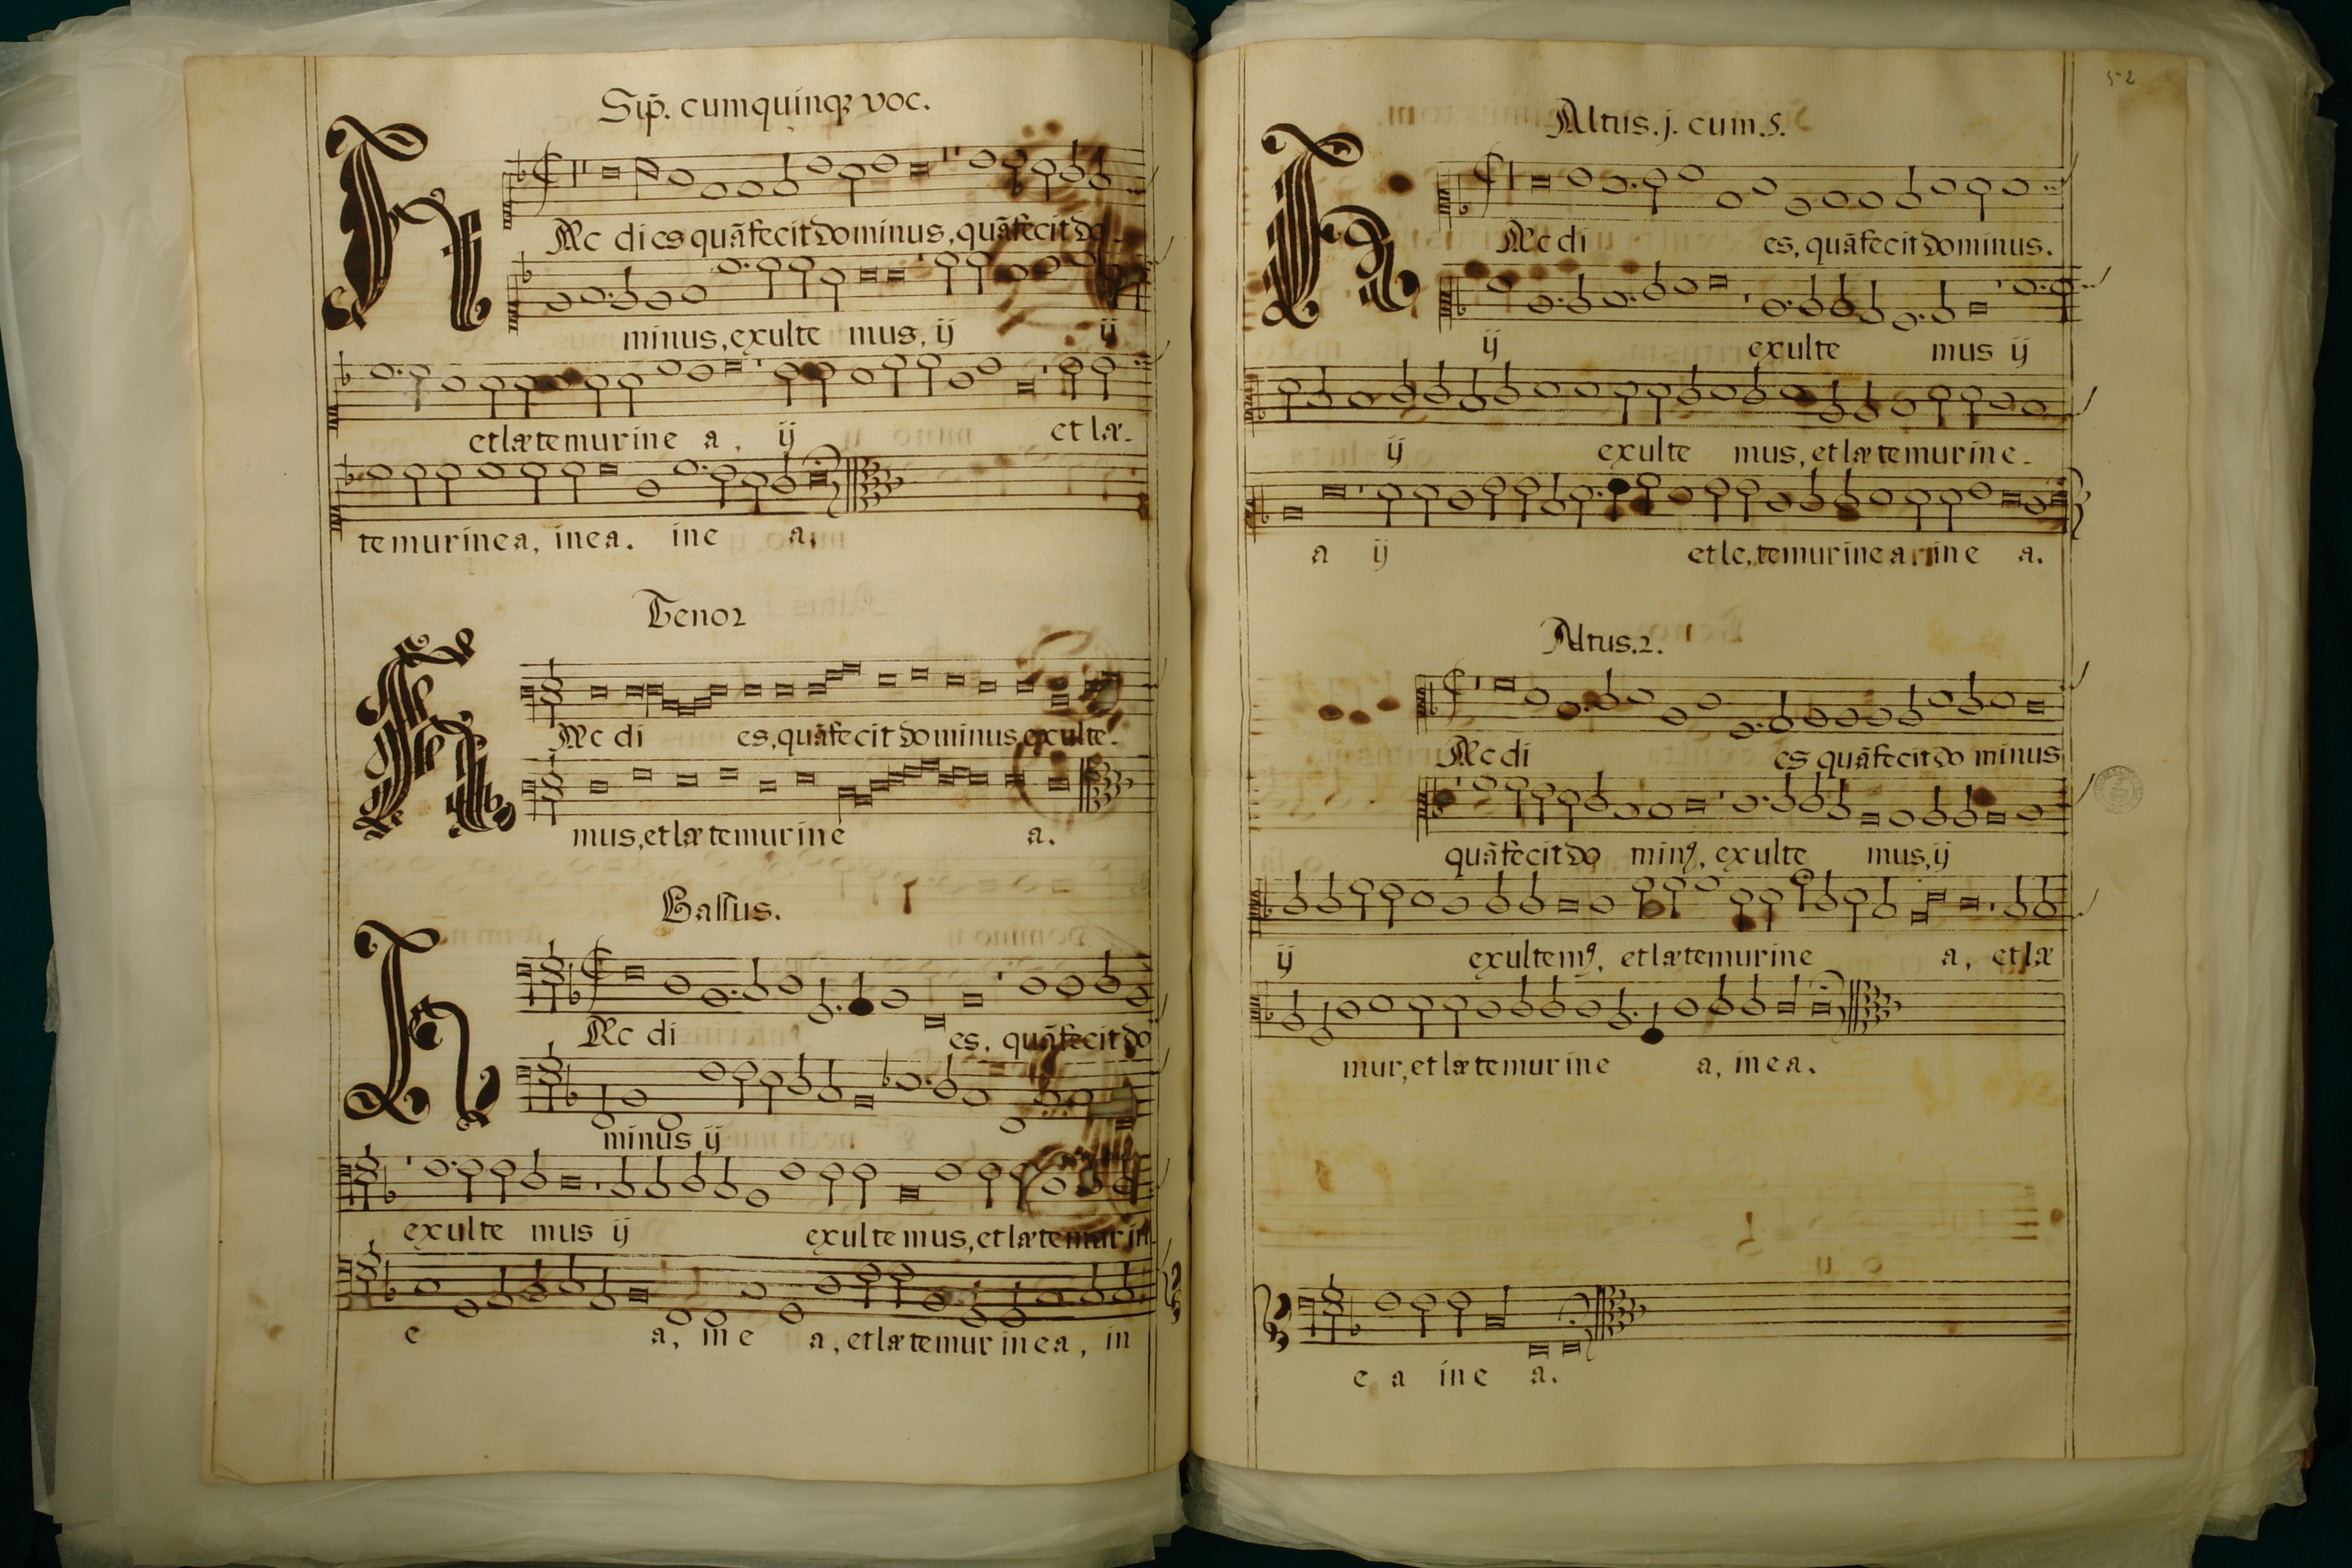 Sup̄. cum quinq₃ voc.
HAec dies quā fecit dominus, quā fecit do-
minus, exulte mus, ij ij
et lætemur in e a, ij et læ-
temur in ea, in ea. in e a.
Tenor
HAec di es, quā fecit dominus, exulte-
mus, et lætemur in e a.
Bassus.
HAec di es, quā fecit do
minus ij
exulte mus ij exultemus, et lætemur in
e a, in e a, et lætemur in ea, in
52
Altus. j. cum. 5.
HAec di es, quā fecit dominus.
ij exulte mus ij
ij exulte mus, et lætemur in e-
a ij et le, temur in e a, in e a.
Altus. 2.
HAec di es quā fecit do minus
quā fecit do minꝰ, exulte mus, ij
ij exultemꝰ, et lætemur in e a, et læ
mur, et lætemur in e a, in ea.
e a in e a.